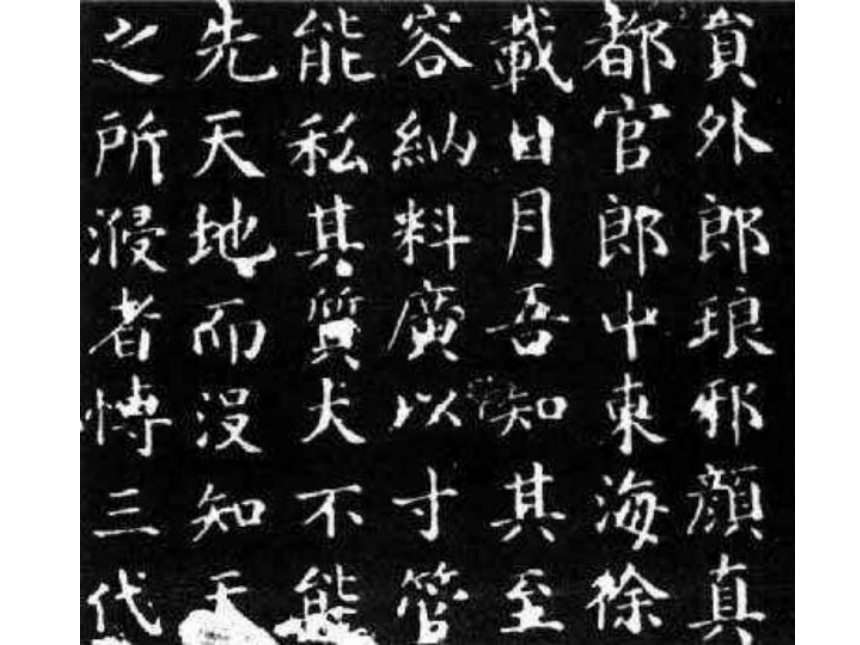 貟外郎琅邪顔真
都官郎中東海徐
載日月吾知其至
容納料廣以寸管
能私其質犬不能
先天地而没知天
之所者慱三代